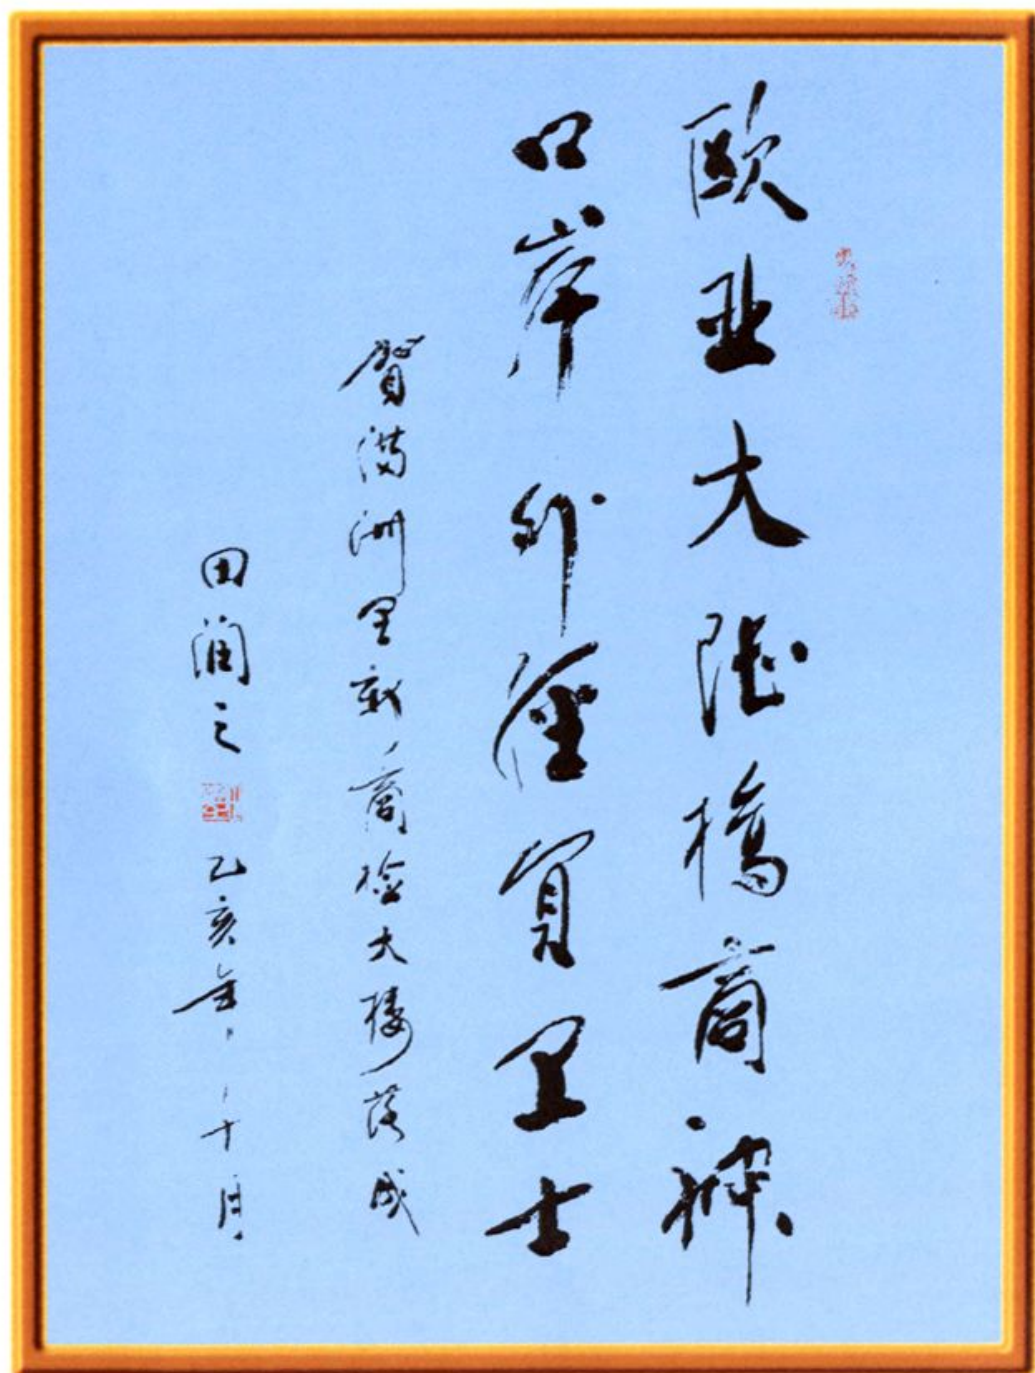 欧亚大陆橋商神
口岸外經貿卫士
賀满洲里新商检大楼落成
田润之
乙亥年十月